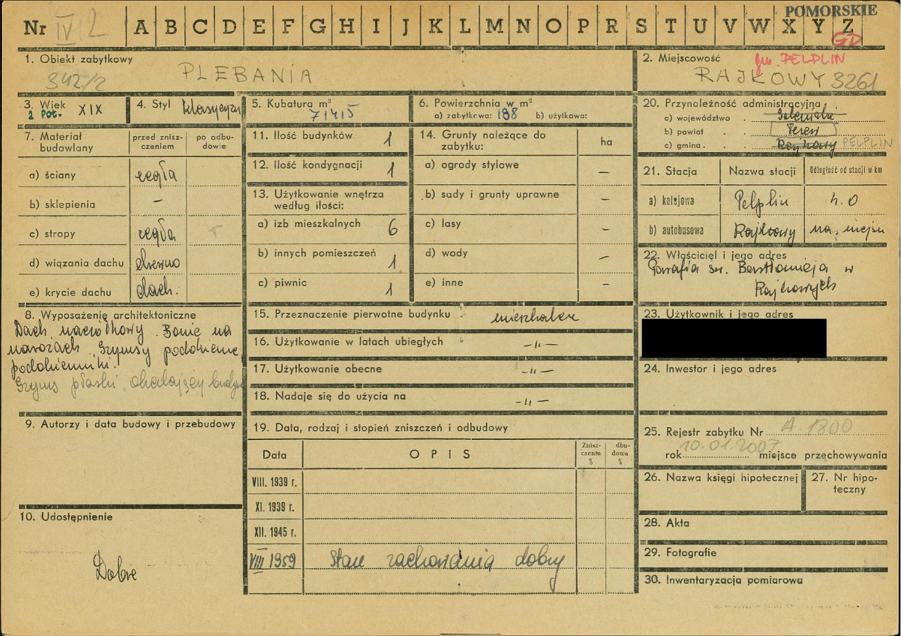 POMORSKIE
Nr IV/2 A B C D E F G H I J K L M N O P R S T U V W X Y Z
GD
1. Obiekt zabytkowy
342/2
PLEBANIA
2. Miejscowość
gm. PELPLIN
RAJKOWY 3261
3. Wiek
2 poł. XIX
4. Styl klasycyzm
5. Kubatura m³
71415
6. Powierzchnia w m²
a) zabytkowa: 188 b) użytkowa:
20. Przynależność administracyjna
a) województwo
b) powiat Tczew
c) gmina Rajkowy PELPLIN
7. Materiał budowlany
przed zniszczeniem
po odbudowie
a) ściany cegła
b) sklepienia –
c) stropy cegła
d) wiązania dachu drewno
e) krycie dachu dach.
11. Ilość budynków 1
12. Ilość kondygnacji 1
13. Użytkowanie wnętrza według ilości:
a) izb mieszkalnych 6
b) innych pomieszczeń 1
c) piwnic 1
14. Grunty należące do zabytku:
ha
a) ogrody stylowe –
b) sady i grunty uprawne –
c) lasy –
d) wody –
e) inne –
21. Stacja
Nazwa stacji
Odległość od stacji w km
a) kolejowa Pelplin 4.0
b) autobusowa Rajkowy na miejscu
22. Właściciel i jego adres
Parafia św. Bartłomieja w
Rajkowych
8. Wyposażenie architektoniczne
Dach naczółkowy. Bonie na
narożach. Gzymsy podokienne,
podokienniki.
Gzyms płaski, obiegający budynek
15. Przeznaczenie pierwotne budynku mieszkalne
16. Użytkowanie w latach ubiegłych -"-
17. Użytkowanie obecne -"-
18. Nadaje się do użycia na -"-
23. Użytkownik i jego adres
24. Inwestor i jego adres
9. Autorzy i data budowy i przebudowy
19. Data, rodzaj i stopień zniszczeń i odbudowy
Data
OPIS
Zniszczenie %
odbudowa %
VIII. 1939 r.
XI. 1939 r.
XII. 1945 r.
VIII 1959 Stan zachowania dobry
25. Rejestr zabytku Nr A-1800
rok 10.01.2007 miejsce przechowywania
26. Nazwa księgi hipotecznej
27. Nr hipoteczny
10. Udostępnienie
Dobre
28. Akta
29. Fotografie
30. Inwentaryzacja pomiarowa